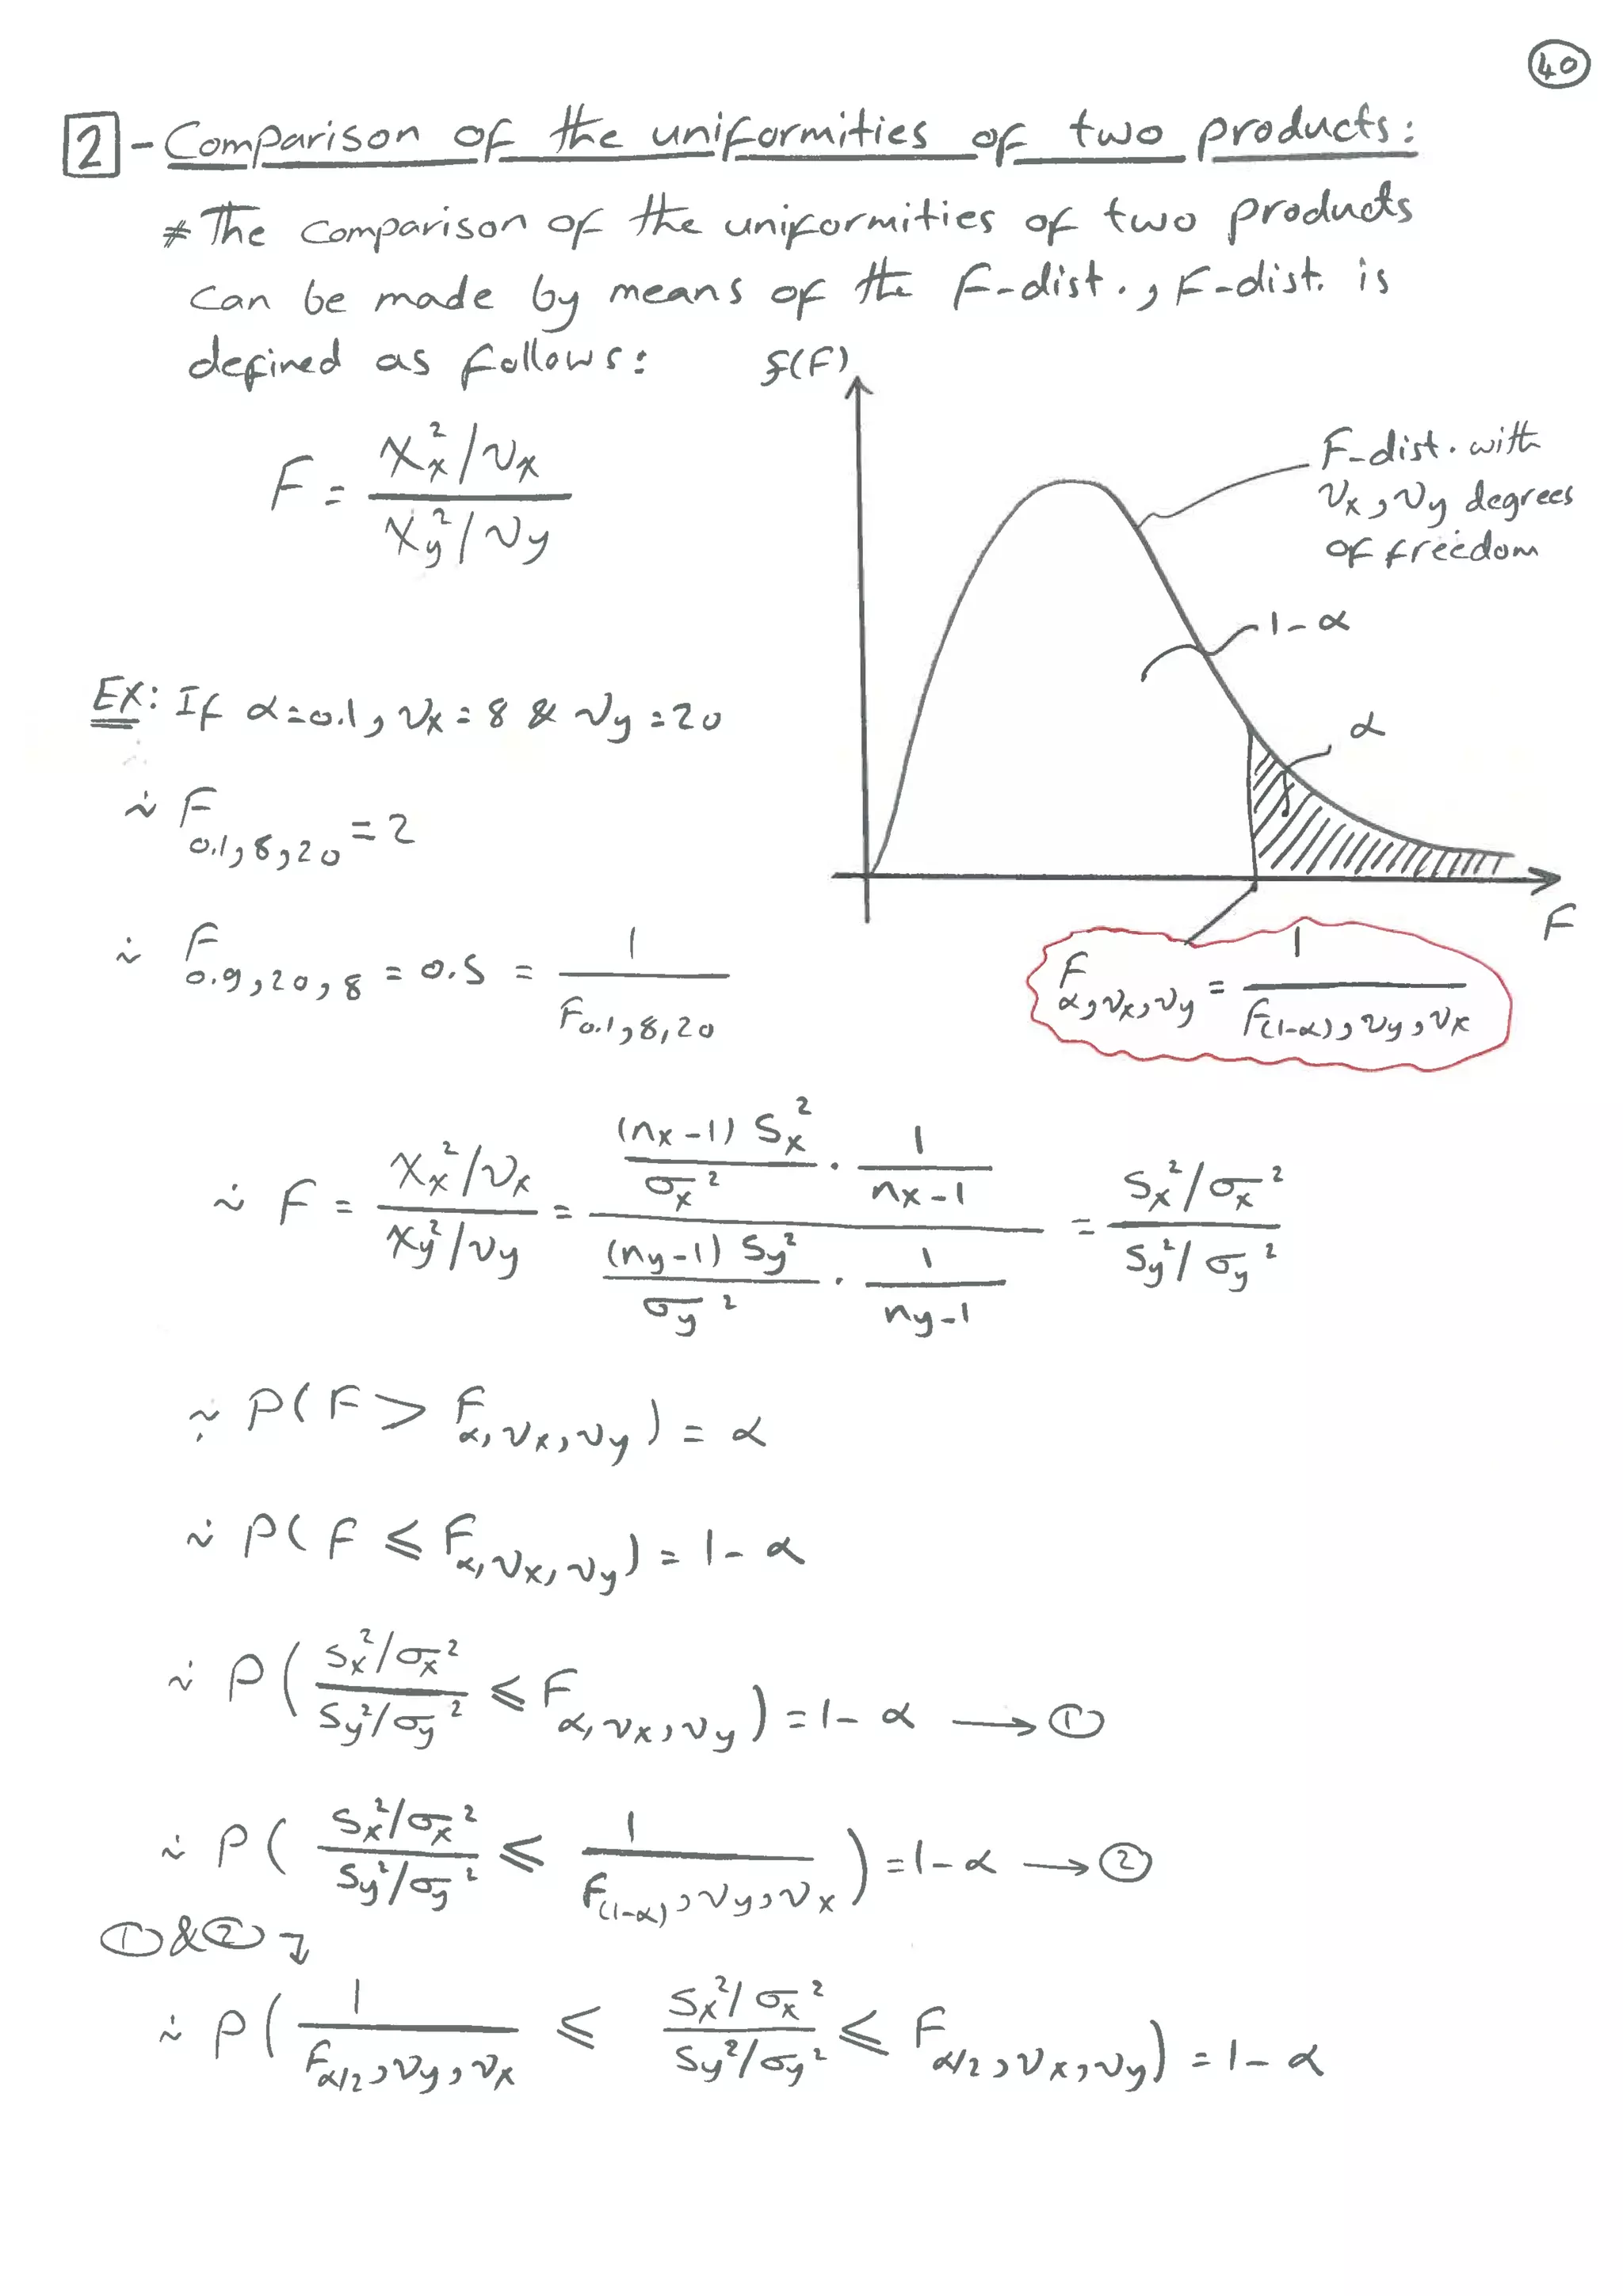 40
2 - Comparison of the uniformities of two products:
* The comparison of the uniformities of two products
can be made by means of the F-dist., F-dist. is
defined as follows:
f(F)
F = (χx²/νx) / (χy²/νy)
F-dist. with
νx, νy degrees
of freedom
1-α
α
EX: If α=0.1, νx=8 & νy=20
∴ F0.1,8,20 = 2
∴ F0.9,20,8 = 0.5 = 1 / F0.1,8,20
F
Fα,νx,νy = 1 / F(1-α),νy,νx
∴ F = (χx²/νx) / (χy²/νy) = ((nx-1) Sx² / σx² · 1 / (nx-1)) / ((ny-1) Sy² / σy² · 1 / (ny-1)) = (Sx²/σx²) / (Sy²/σy²)
∵ P(F > Fα,νx,νy) = α
∴ P(F ≤ Fα,νx,νy) = 1-α
∴ P((Sx²/σx²) / (Sy²/σy²) ≤ Fα,νx,νy) = 1-α → ①
∴ P((Sx²/σx²) / (Sy²/σy²) ≤ 1 / F(1-α),νy,νx) = 1-α → ②
①&② ↴
∴ P(1 / Fα/2,νy,νx ≤ (Sx²/σx²) / (Sy²/σy²) ≤ Fα/2,νx,νy) = 1-α